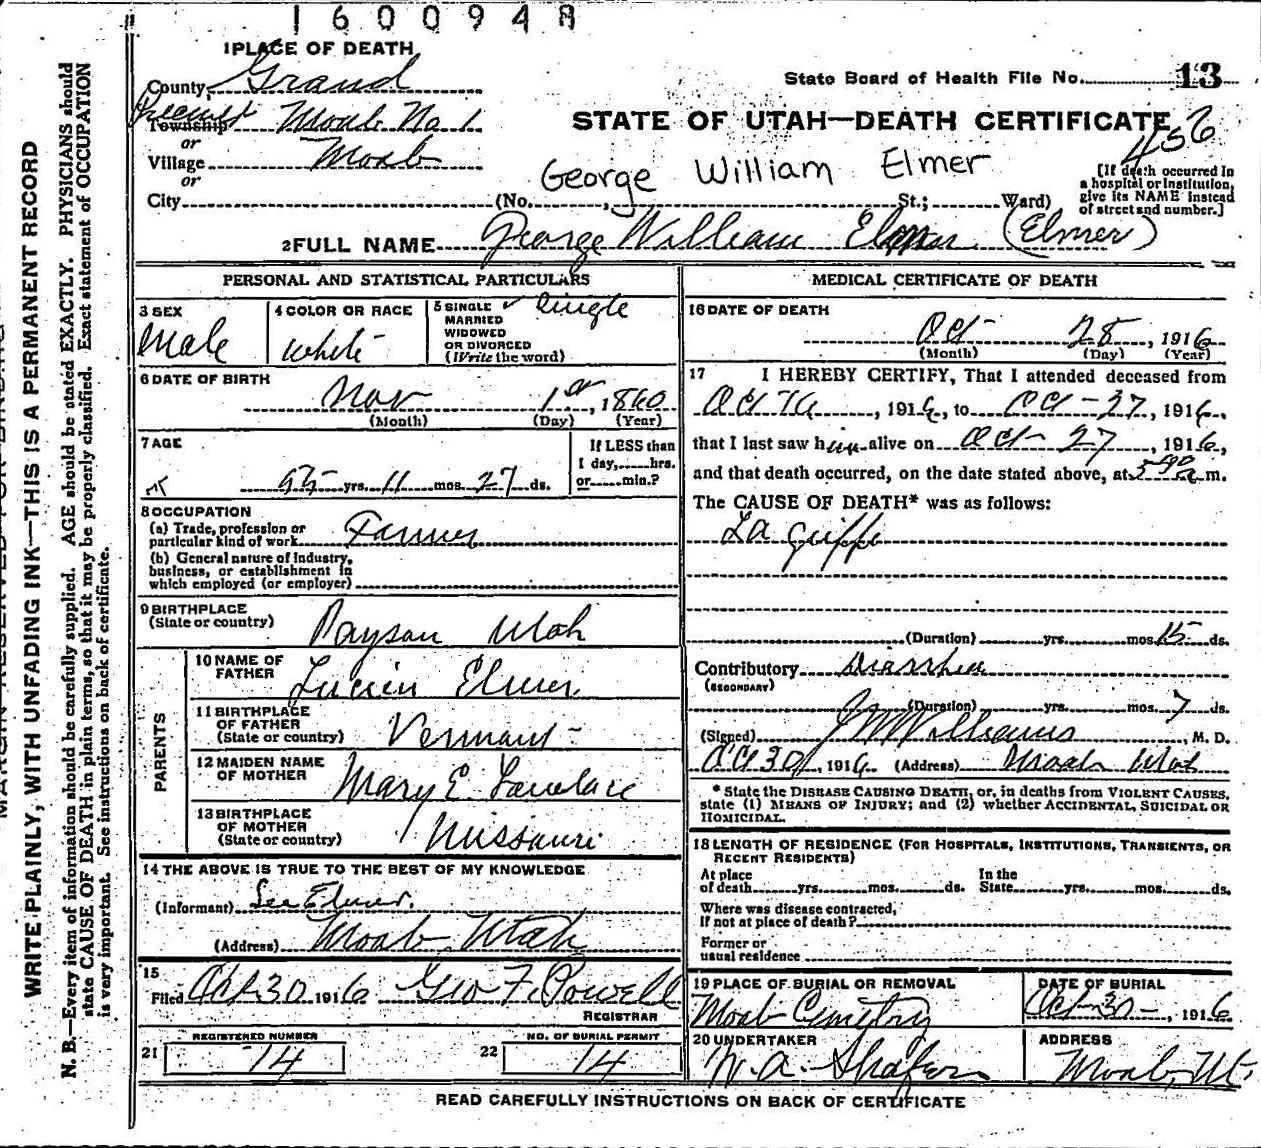 1600948
1 PLACE OF DEATH
County Grand
State Board of Health File No. 13
Precinct Moab No 1
Township
or
Village Moab
or
City
STATE OF UTAH—DEATH CERTIFICATE
456
George William Elmer
(No. , St.; Ward)
[If death occurred in
a hospital or institution,
give its NAME instead
of street and number.]
2 FULL NAME George William Elmer (Elmer)
PERSONAL AND STATISTICAL PARTICULARS
3 SEX
Male
4 COLOR OR RACE
White
5 SINGLE Single
MARRIED
WIDOWED
OR DIVORCED
(Write the word)
6 DATE OF BIRTH
Nov 1st, 1860
(Month) (Day) (Year)
7 AGE
55 yrs. 11 mos. 27 ds.
If LESS than
1 day, hrs.
or min.?
8 OCCUPATION
(a) Trade, profession or
particular kind of work Farmer
(b) General nature of industry,
business, or establishment in
which employed (or employer)
9 BIRTHPLACE
(State or country) Payson Utah
PARENTS
10 NAME OF
FATHER Lucien Elmer
11 BIRTHPLACE
OF FATHER
(State or country) Vermont
12 MAIDEN NAME
OF MOTHER Mary E.
13 BIRTHPLACE
OF MOTHER
(State or country) Missouri
14 THE ABOVE IS TRUE TO THE BEST OF MY KNOWLEDGE
(Informant) Lee Elmer.
(Address) Moab Utah
15
Filed Oct 30 1916 Geo F. Powell
REGISTRAR
REGISTERED NUMBER
21 14
NO. OF BURIAL PERMIT
22 14
MEDICAL CERTIFICATE OF DEATH
16 DATE OF DEATH
Oct 28, 1916
(Month) (Day) (Year)
17 I HEREBY CERTIFY, That I attended deceased from
Oct, 1916, to Oct-27, 1916,
that I last saw him alive on Oct-27, 1916,
and that death occurred, on the date stated above, at a m.
The CAUSE OF DEATH* was as follows:
La Grippe
(Duration) yrs. mos. 15 ds.
Contributory Diarrhea
(SECONDARY)
(Duration) yrs. mos. 7 ds.
(Signed) J W Williams, M. D.
Oct 30, 1916 (Address) Moab Utah
* State the DISEASE CAUSING DEATH, or, in deaths from VIOLENT CAUSES,
state (1) MEANS OF INJURY; and (2) whether ACCIDENTAL, SUICIDAL OR
HOMICIDAL.
18 LENGTH OF RESIDENCE (FOR HOSPITALS, INSTITUTIONS, TRANSIENTS, OR
RECENT RESIDENTS)
At place In the
of death yrs. mos. ds. State yrs. mos. ds.
Where was disease contracted,
If not at place of death?
Former or
usual residence
19 PLACE OF BURIAL OR REMOVAL
Moab Cemetry
DATE OF BURIAL
Oct-30-, 1916
20 UNDERTAKER
W. A. Shafer
ADDRESS
Moab, Ut.
READ CAREFULLY INSTRUCTIONS ON BACK OF CERTIFICATE
WRITE PLAINLY, WITH UNFADING INK—THIS IS A PERMANENT RECORD
N. B.—Every item of information should be carefully supplied. AGE should be stated EXACTLY. PHYSICIANS should
state CAUSE OF DEATH in plain terms, so that it may be properly classified. Exact statement of OCCUPATION
is very important. See instructions on back of certificate.